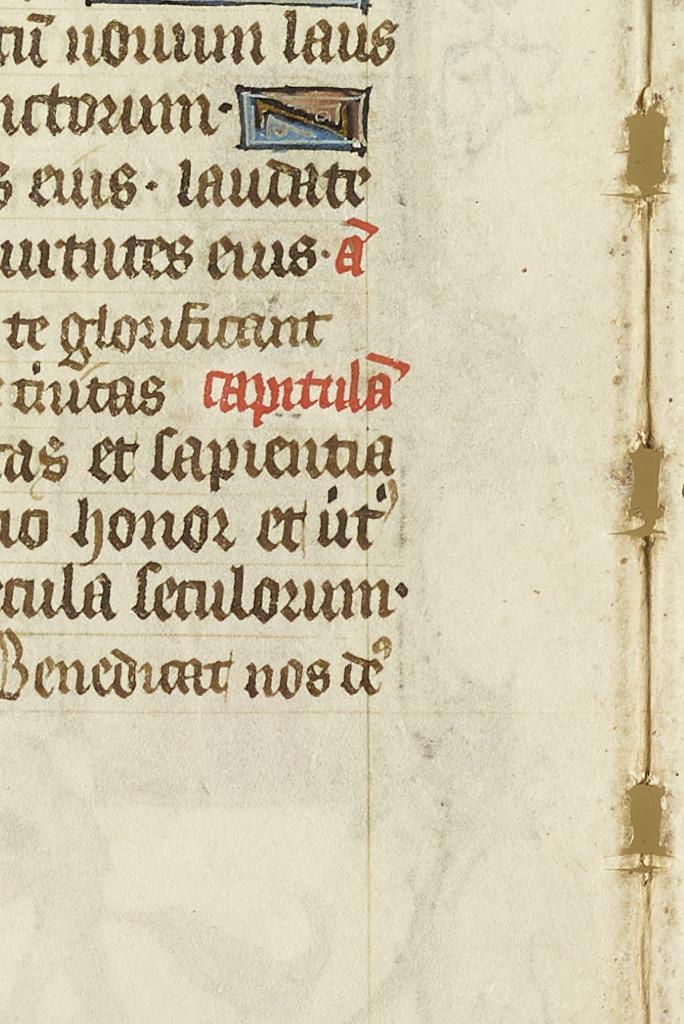 tū nouum laus
nctorum·
s eius· laudate
uirtutes eius· ā
te glorificant
tinitas capitulā
tas et sapientia
io honor et uirt'
ecula seculorum·
Benedicat nos deꝰ